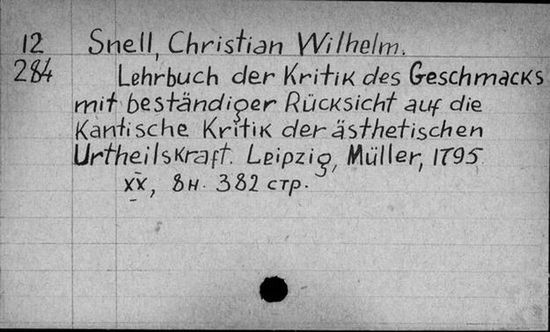 12 Snell, Christian Wilhelm.
284 Lehrbuch der Kritik des Geschmacks
mit beständiger Rücksicht auf die
Kantische Kritik der ästhetischen
Urtheilskraft. Leipzig, Müller, 1795
XX, 8н. 382 стр.